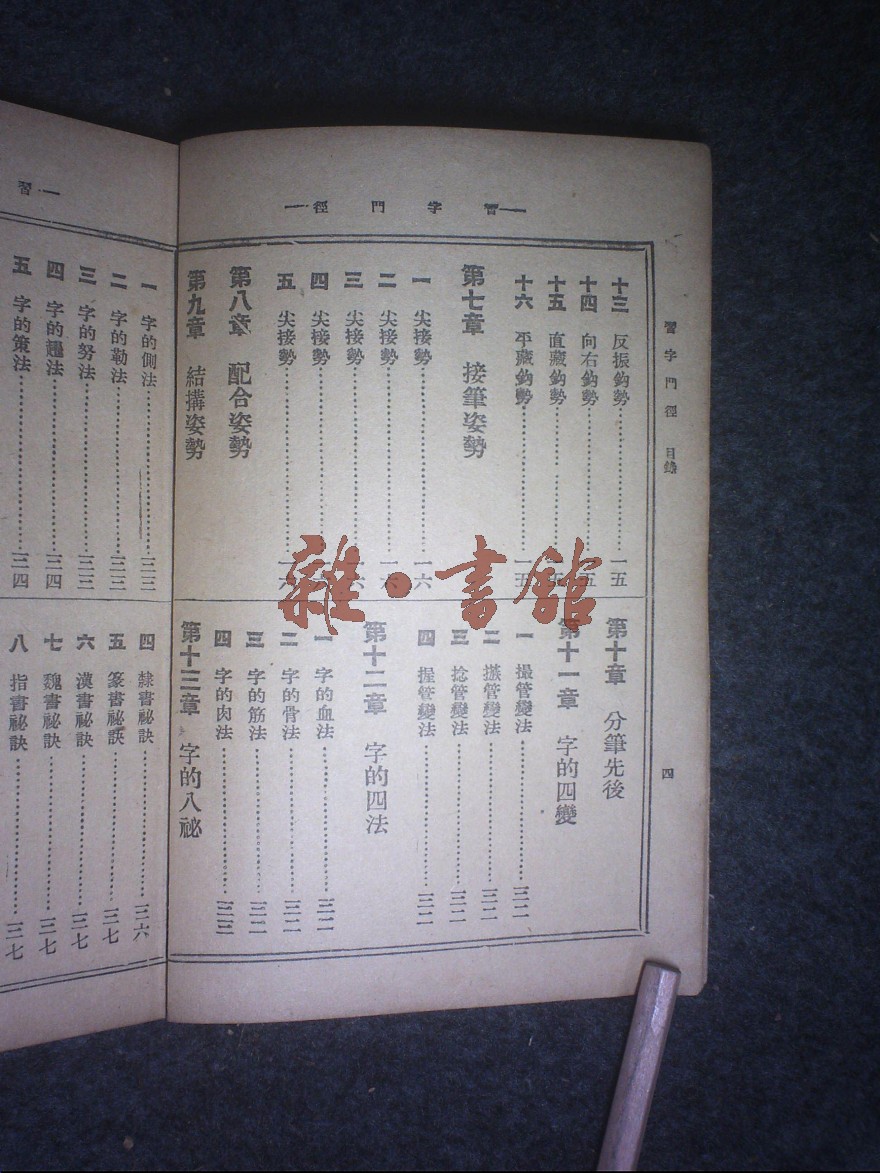 習字門徑
習字門徑 目錄 四
十三 反振鈎勢 一五
十四 向右鈎勢 一五
十五 直藏鈎勢 一五
十六 平藏鈎勢 一五
第七章 接筆姿勢
一 尖接勢 一六
二 尖接勢 一六
三 尖接勢 一六
四 尖接勢
五 尖接勢 一六
第八章 配合姿勢
第九章 結構姿勢
第十章 分筆先後
第十一章 字的四變
一 撮管變法 三二
二 擫管變法 三二
三 捻管變法 三二
四 握管變法 三二
第十二章 字的四法
一 字的血法 三二
二 字的骨法 三二
三 字的筋法 三二
四 字的肉法 三三
第十三章 字的八祕
習
一 字的側法 三三
二 字的勒法 三三
三 字的努法 三三
四 字的趯法 三四
五 字的策法 三四
四 隸書祕訣 三六
五 篆書祕訣 三七
六 漢書祕訣 三七
七 魏書祕訣 三七
八 指書祕訣 三七
雜·書館